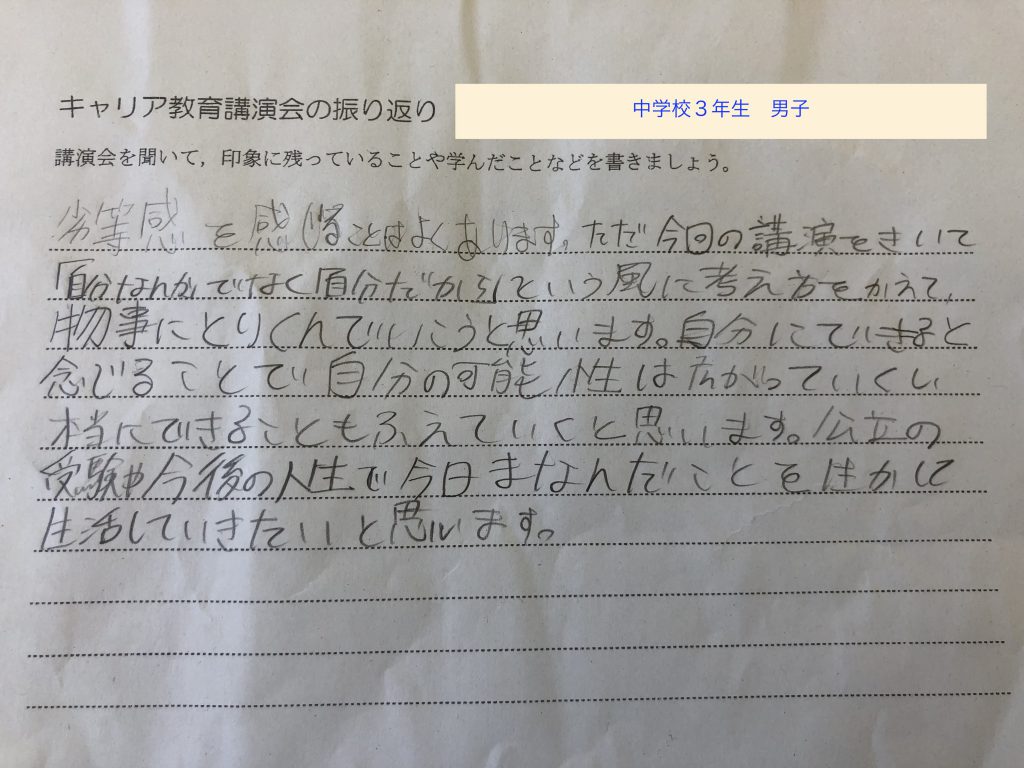 キャリア教育講演会の振り返り
中学校3年生 男子
講演会を聞いて,印象に残っていることや学んだことなどを書きましょう。
劣等感を感じることはよくあります。ただ今回の講演をきいて
「自分なんか」でなく「自分だから」という風に考え方をかえて、
物事にとりくんでいこうと思います。自分にできると
念じることで自分の可能性は広がっていくし
本当にできることもふえていくと思います。公立の
受験や今後の人生で今日まなんだことをいかして
生活していきたいと思います。